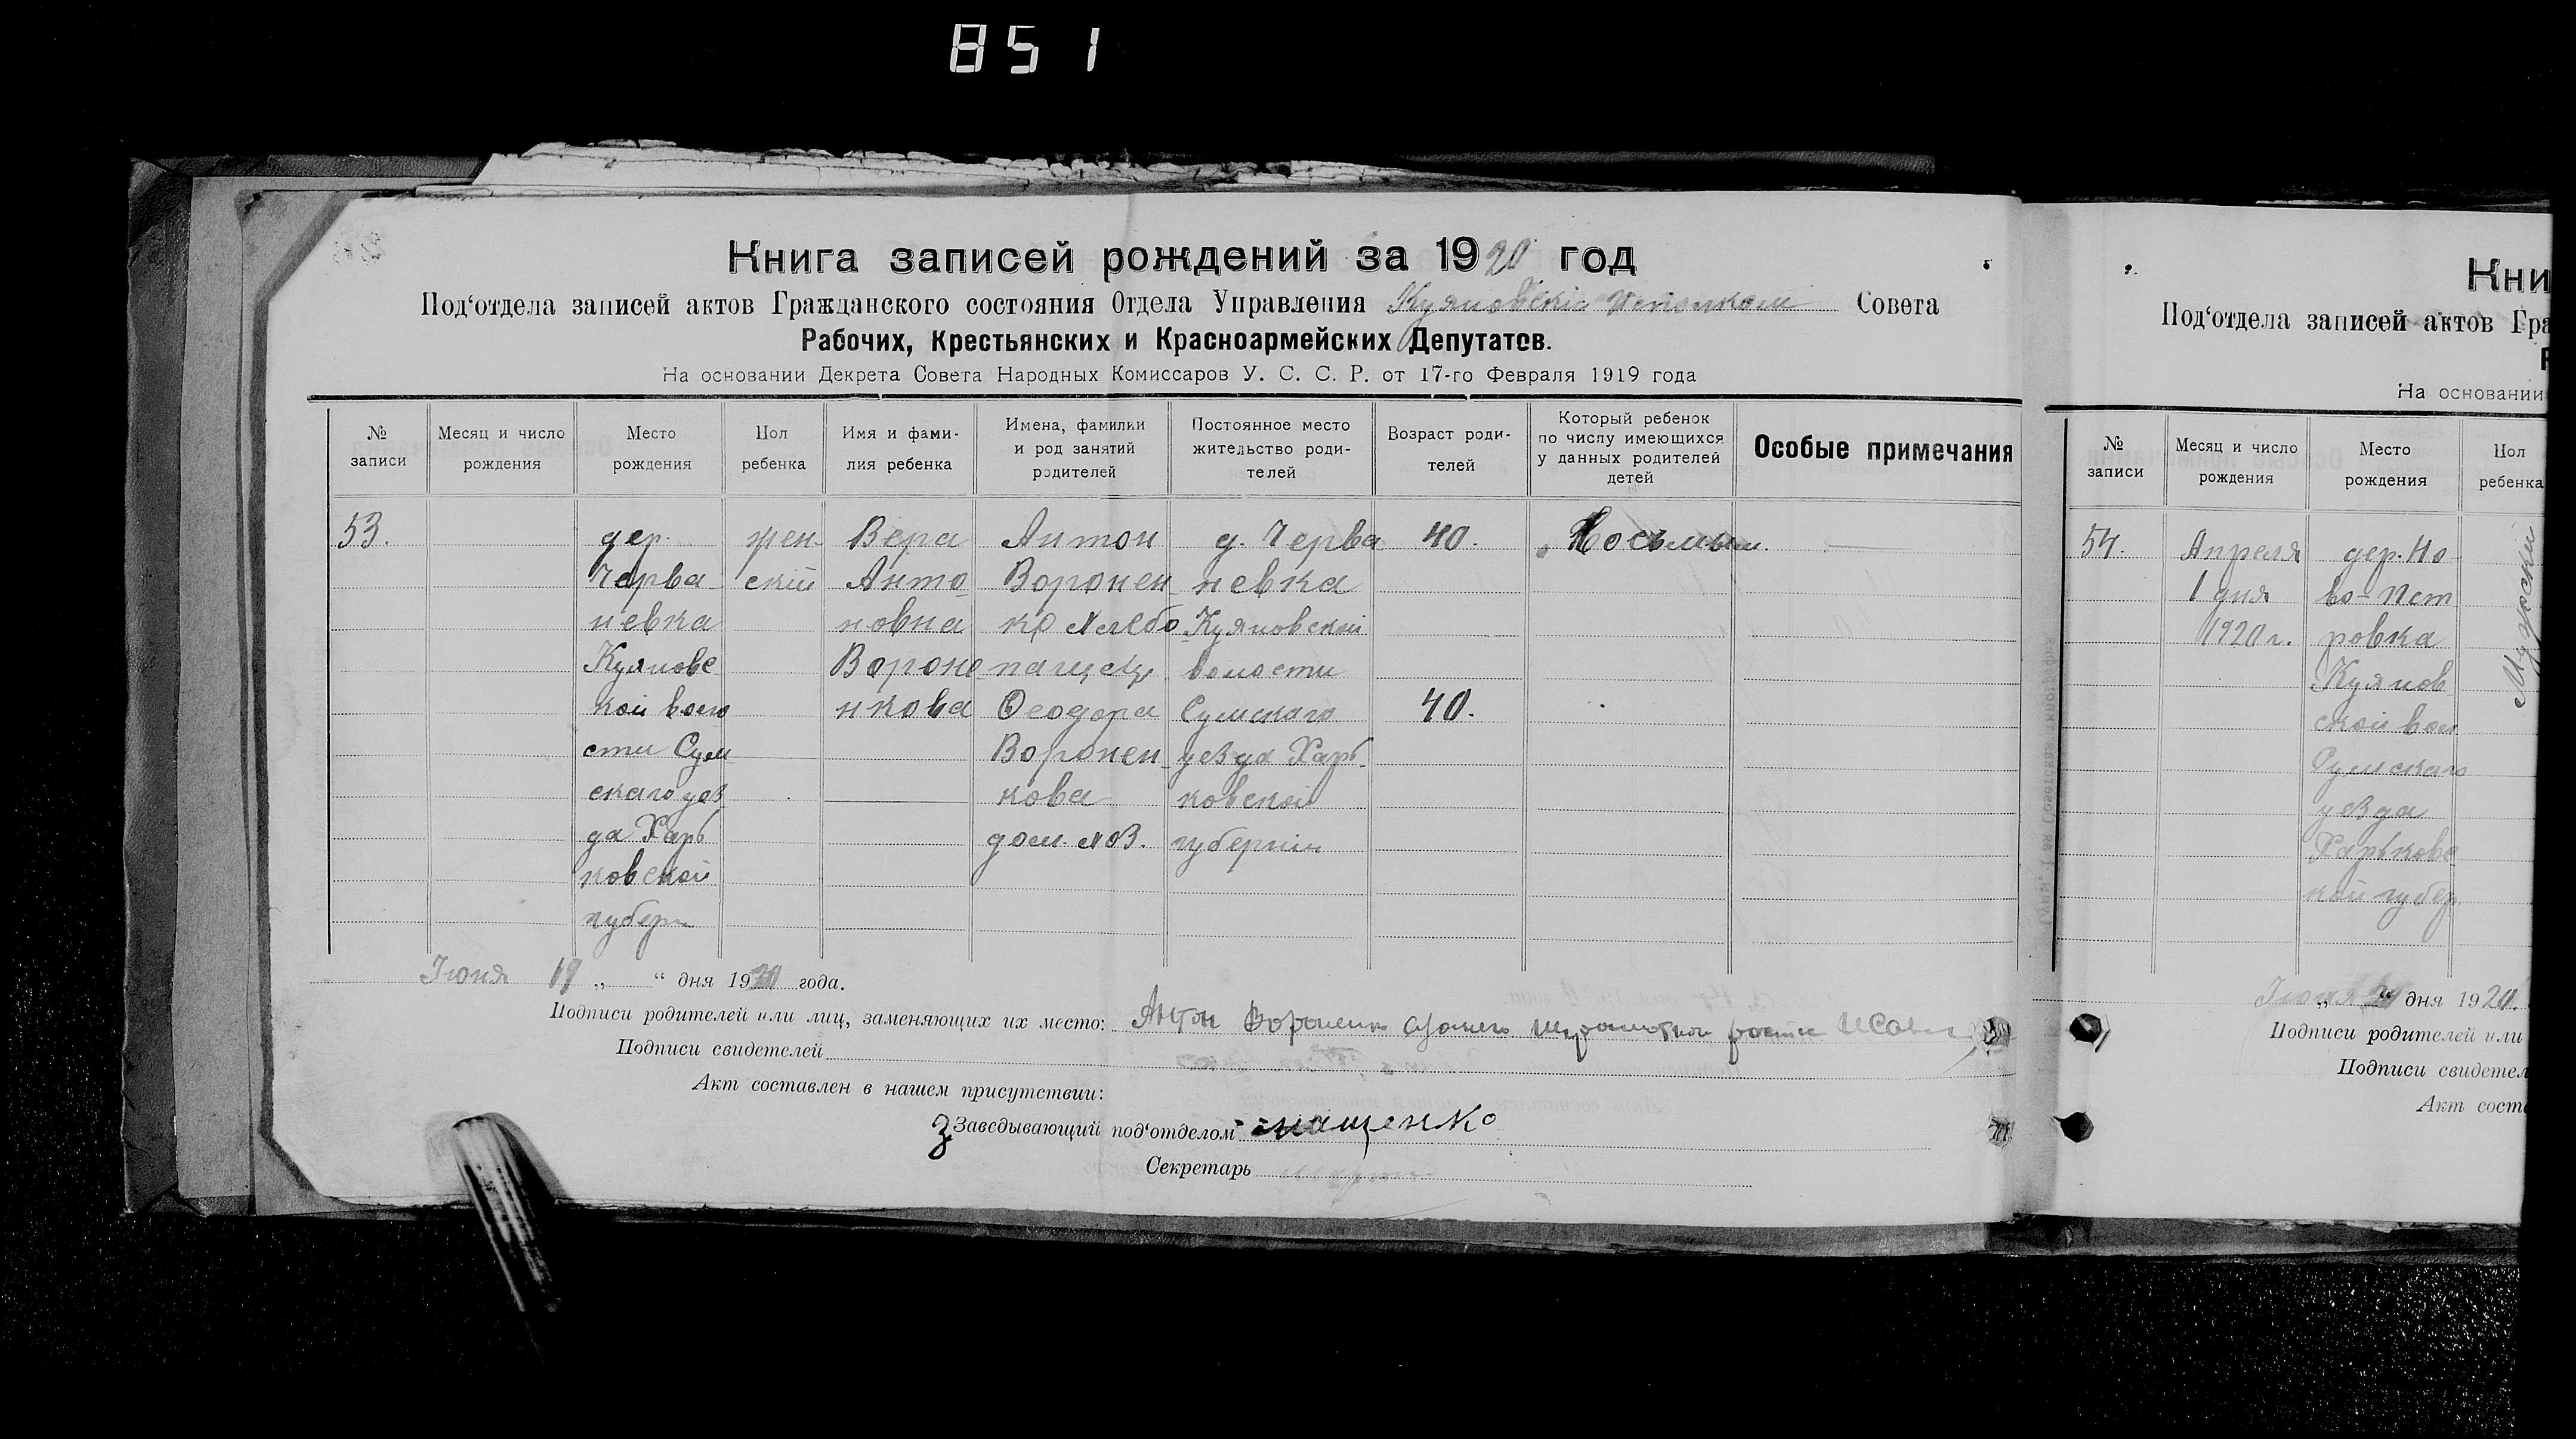 851
Книга записей рождений за 1920 год
Под‘отдела записей актов Гражданского состояния Отдела Управления Куяновскiй Исполком Совета
Рабочих, Крестьянских и Красноармейских Депутатов.
На основании Декрета Совета Народных Комиссаров У. С. С. Р. от 17-го Февраля 1919 года
№ записи
Месяц и число рождения
Место рождения
Пол ребенка
Имя и фами-
лия ребенка
Имена, фамилии
и род занятий
родителей
Постоянное место
жительство роди-
телей
Возраст роди-
телей
Который ребенок
по числу имеющихся
у данных родителей
детей
Особые примечания
53.
дер.
Черва-
невка
Куяновс
кой воло
сти Сум
скаго уез
да Харь
ковской
губерн
жен
скiй
Вера
Анто
новна
Вороне
нкова
Антон
Воронен
ко Хлебо
пашец
Феодора
Воронен
кова
дом. хоз.
д. Черва
невка
Куяновской
волости
Сумскаго
уезда Харь-
ковской
губернiи
40.
40.
Восьмым.
Iюня 19 „ “ дня 1920 года.
Подписи родителей или лиц, заменяющих их место: Антон Вороненко
Подписи свидетелей
Акт составлен в нашем присутствии:
З Заведывающий под‘отделом
Секретарь
Кни
Под‘отдела записей актов Гра
Р
На основании
№ записи
Месяц и число рождения
Место рождения
Пол ребенка
54.
Апреля
1 дня
1920 г.
дер. Но-
во-Пет
ровка
Куянов
ской вол
Сумскаго
уезда
Харьковс
кой губер
Мужской
Iюня 20 „ “ дня 1920
Подписи родителей или
Подписи свидетел
Акт соста